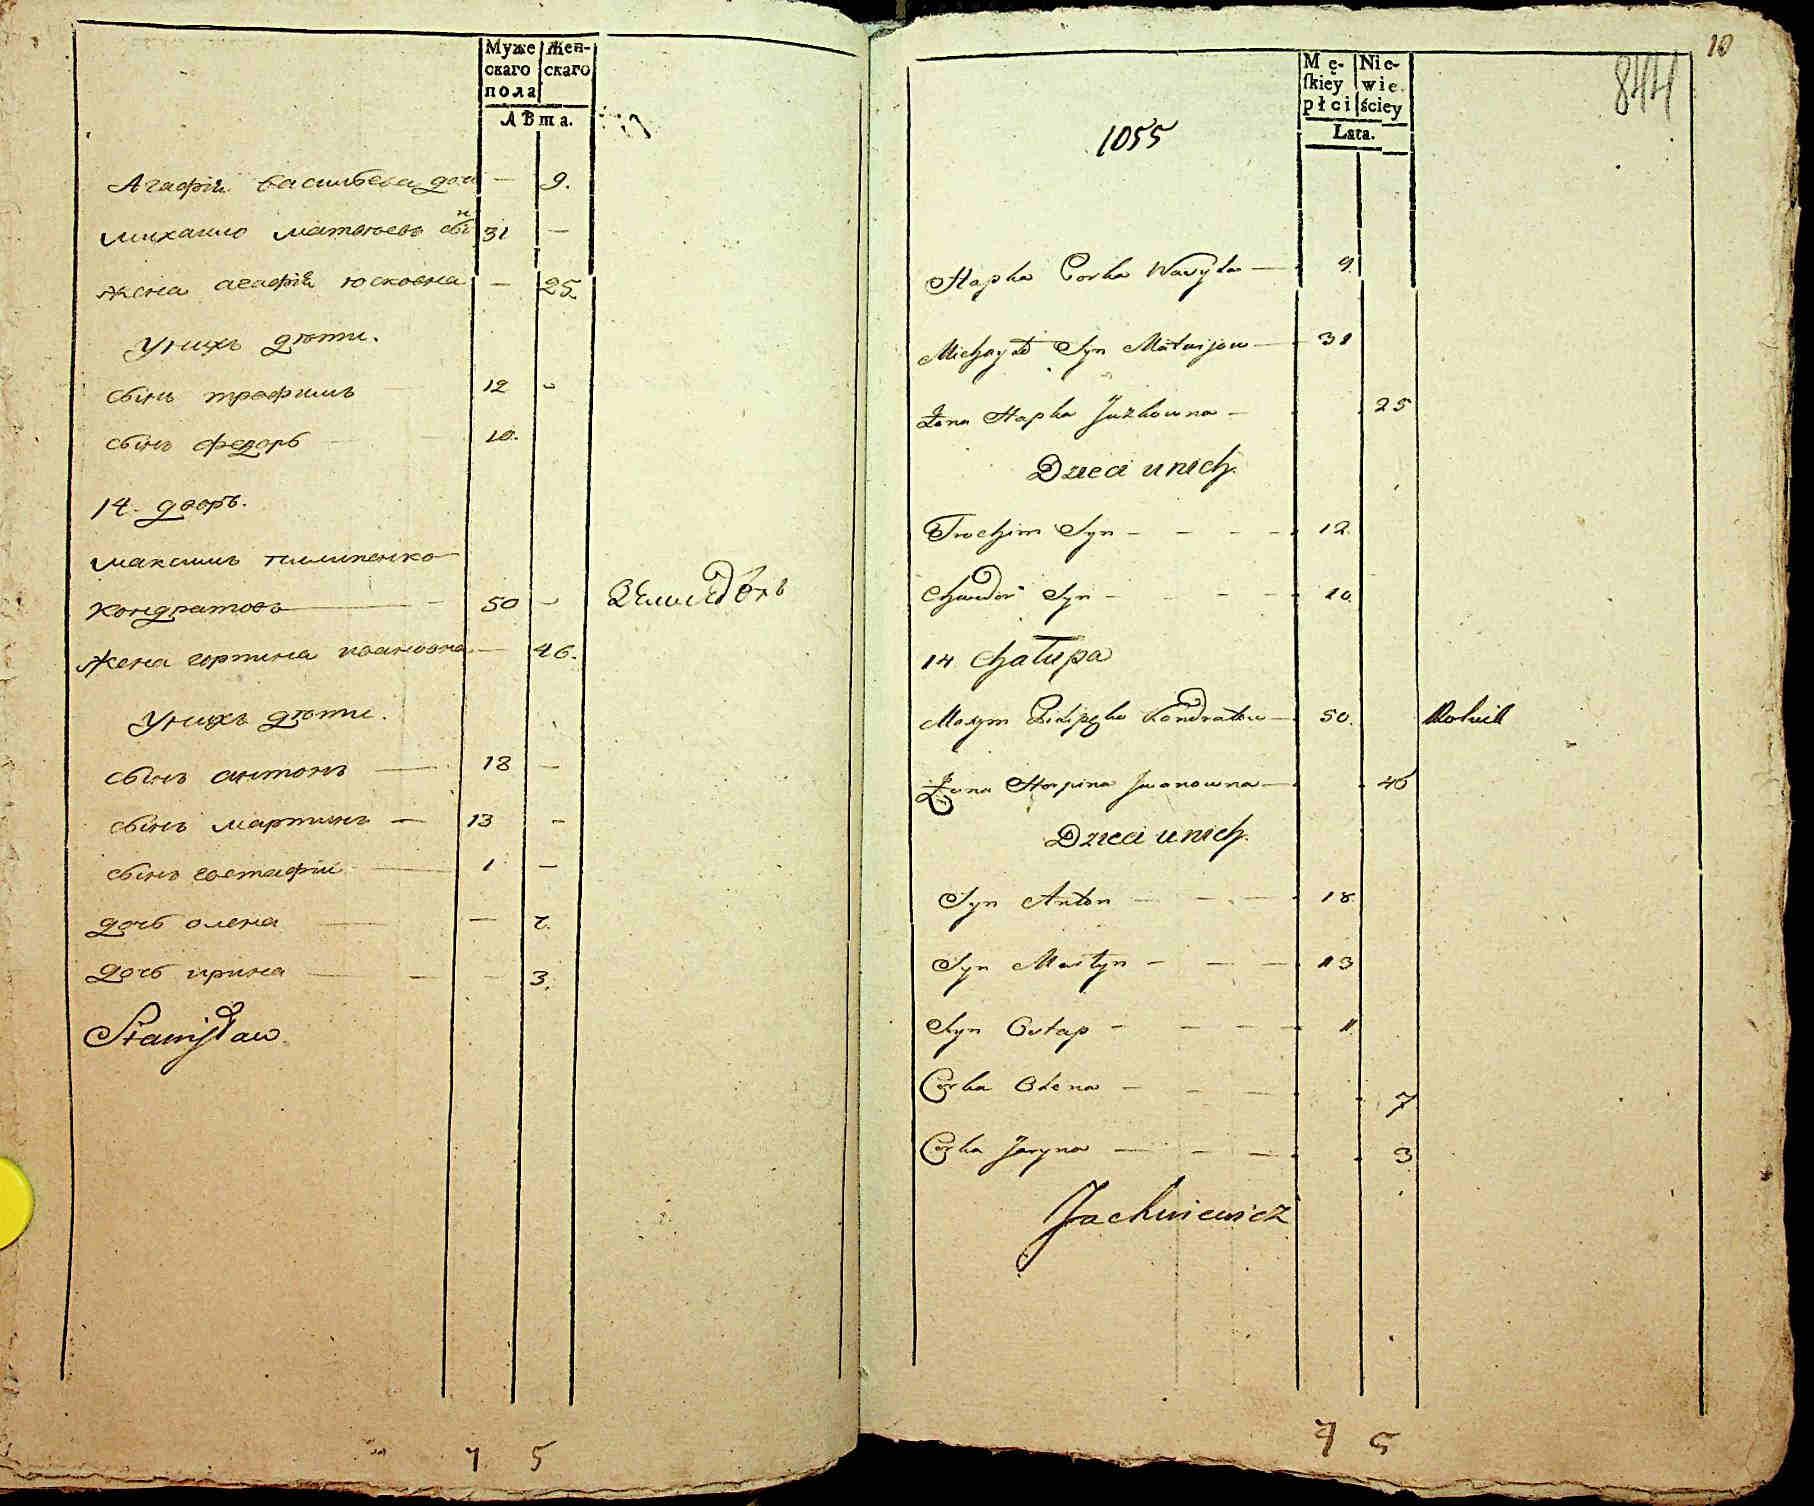 Муже Жен-
скаго скаго
пола
Лѣта.
Агафія Васильева доч — 9.
Михаило Матвѣевъ сынъ 31 —
Жена Агафія Юсковна — 25
У нихъ дѣти.
сынъ Трофимъ 12 -
сынъ Федоръ 10.
14. дворъ.
Максимъ Пилипенко
Кондратовъ 50 - Земледѣлъ
Жена Горпина Ивановна — 46.
У нихъ дѣти.
сынъ Антонъ — 18 —
сынъ Мартинъ — 13 -
сынъ Гостафій — 1 —
дочь Олена — 7.
дочь Ирина — 3.
Stanisław
7 5
10
844
Mę- Nie-
ſkiey wie
płci ściey
Lata.
1055
Hapka Corka Wasyla — 9.
Michayło Syn Matwijow — 31
Żona Hapka Juzkowna — 25
Dzieci u nich
Trochim Syn - - - - 12.
Chwedor Syn - - - - 10.
14 Chałupa
Maxym Pilipenko Kondratow — 50. Rolnik
Żona Horpina Iwanowna — 46
Dzieci u nich.
Syn Anton — - - 18
Syn Martyn - - - 13
Syn Ostap - - - - 1.
Corka Olena - - - 7
Corka Jaryna — - - - 3
Jachniewicz
7 5